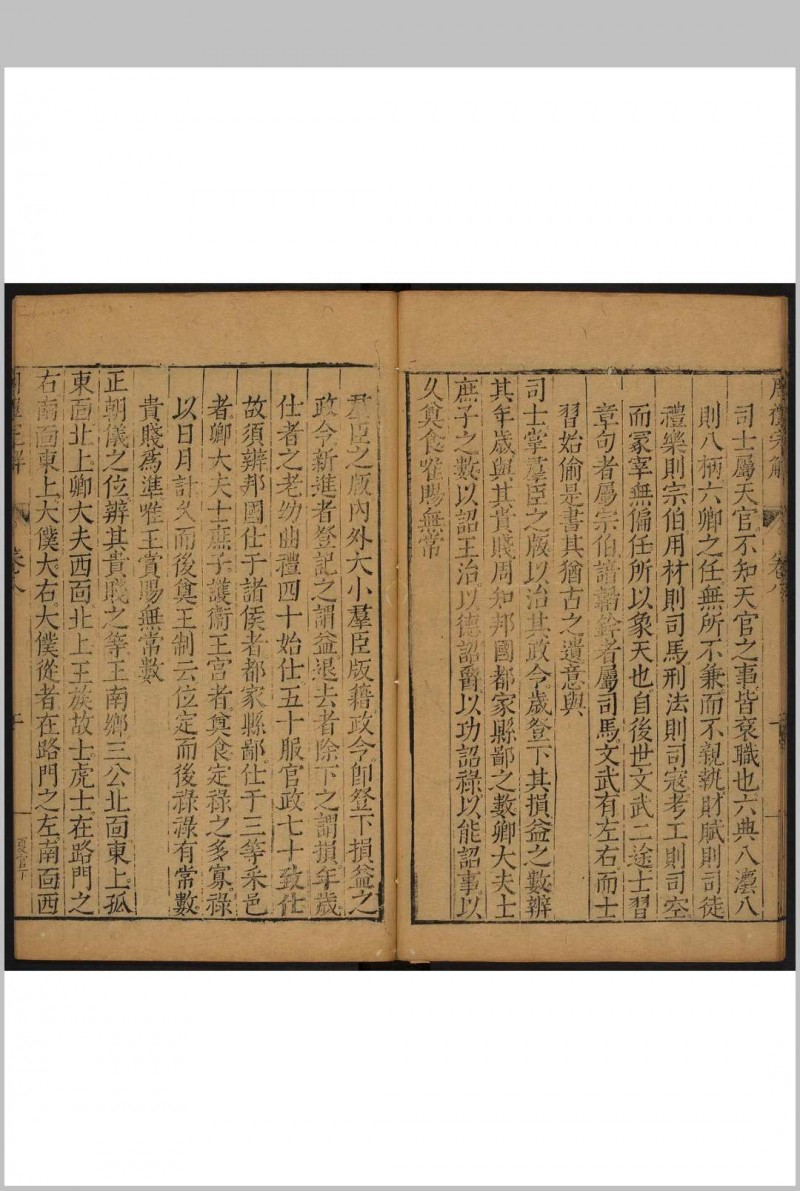 司士屬天官不知天官之事皆衮職也六典八灋八
則八柄六卿之任無所不兼而不親執財賦則司徒
禮樂則宗伯用材則司馬刑法則司寇考工則司空
而冢宰無偏任所以象天也自後世文武二途士習
章句者屬宗伯諳韜鈐者屬司馬文武有左右而士
習始偷是書其猶古之遺意與
司士掌羣臣之版以治其政令歲登下其損益之數辨
其年歲與其貴賤周知邦國都家縣鄙之數卿大夫士
庶子之數以詔王治以德詔爵以功詔祿以能詔事以
久奠食唯賜無常
羣臣之版內外大小羣臣版籍政令卽登下損益之
政令新進者登記之謂益退去者除下之謂損年歲
仕者之老幼曲禮四十始仕五十服官政七十致仕
故須辨邦國仕于諸侯者都家縣鄙仕于三等采邑
者卿大夫士庶子護衞王宮者奠食定祿之多寡祿
以日月計久而後奠王制云位定而後祿祿有常數
貴賤爲準唯王賞賜無常數
正朝儀之位辨其貴賤之等王南鄉三公北面東上孤
東面北上卿大夫西面北上王族故士虎士在路門之
右南面東上大僕大右大僕從者在路門之左南面西
卷八
夏官下